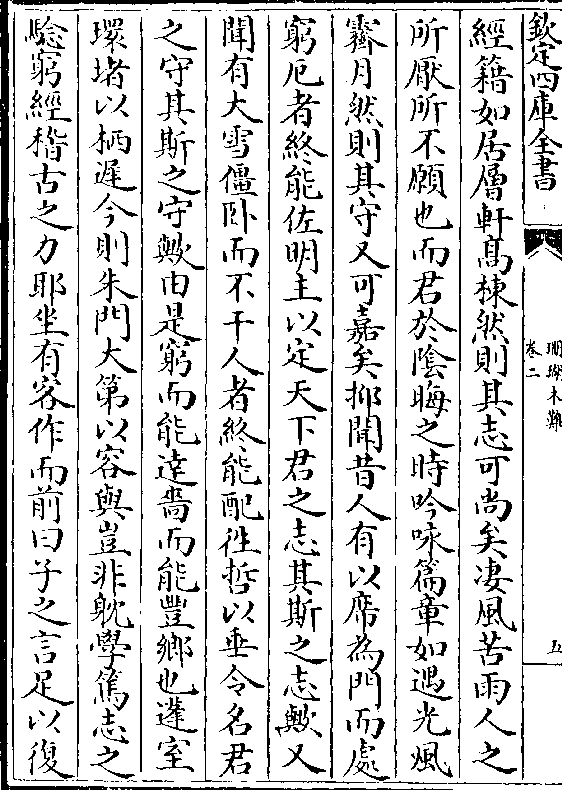 欽定四庫全書
珊瑚木難
卷二
五
經籍如居層軒高棟然則其志可尚矣淒風苦雨人之
所厭所不願也而君於陰晦之時吟咏篇章如遇光風
霽月然則其守又可嘉矣抑聞昔人有以席為門而處
窮厄者終能佐明主以定天下君之志其斯之志歟又
聞有大雪僵卧而不干人者終能配徃哲以垂令名君
之守其斯之守歟由是窮而能逹嗇而能豐鄉也蓬室
環堵以栖遲今則朱門大第以容與豈非躭學篤志之
騐窮經稽古之力耶坐有客作而前曰子之言足以復